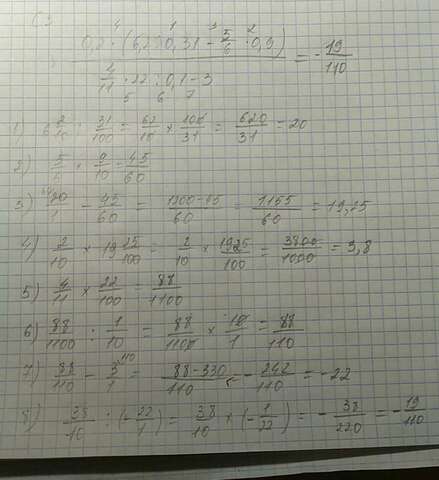 0,2 · (6,2 : 0,31 - 5/6 · 0,9)
4 1 3 2
= - 19/110
· 22 : 0,1 - 3
5 6 7
1) 6 2/10 : 31/100 = 62/10 × 100/31 = 620/31 = 20
2) · 9/10 = 45/60
3) 20/1 - 45/60 = 1200-45/60 = 1155/60 = 19,25
4) 2/10 × 19 25/100 = 2/10 × 1925/100 = 3800/1000 = 3,8
5) 4/11 × 22/100 = 88/1100
6) 88/1100 : 1/10 = 88/1100 × 10/1 = 88/110
7) 88/110 - 3/1 110 = 88-330/110 = - 242/110 = -22
8) 38/10 : (- 22/1) = 38/10 × (- 1/22) = - 38/220 = - 19/110